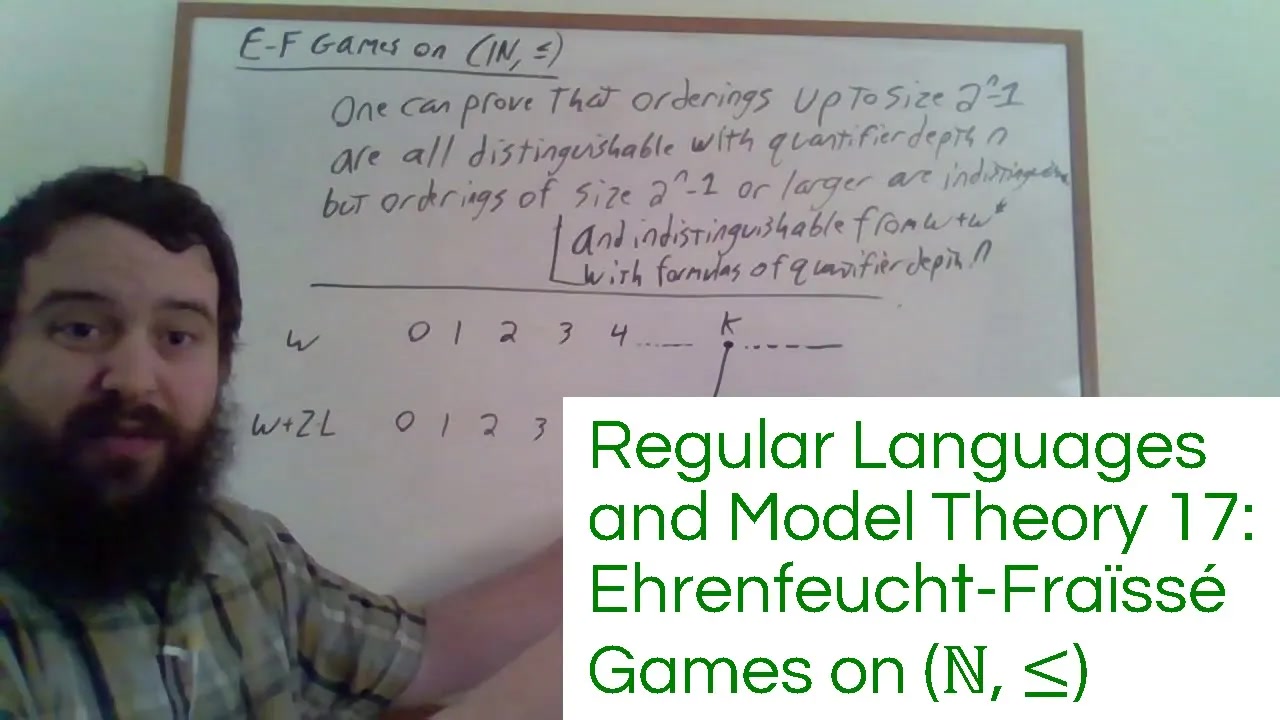 E-F Games on (ℕ, ≤)
One can prove that orderings up to size 2^n-1
are all distinguishable with quantifier depth n
but orderings of size 2^n-1 or larger are
and indistinguishable from ω+ω*
with formulas of quantifier depth n
ω 0 1 2 3 4 ...... K ------
ω+ℤ·L 0 1 2 3
Regular Languages
and Model Theory 17:
Ehrenfeucht-Fraïssé
Games on (ℕ, ≤)